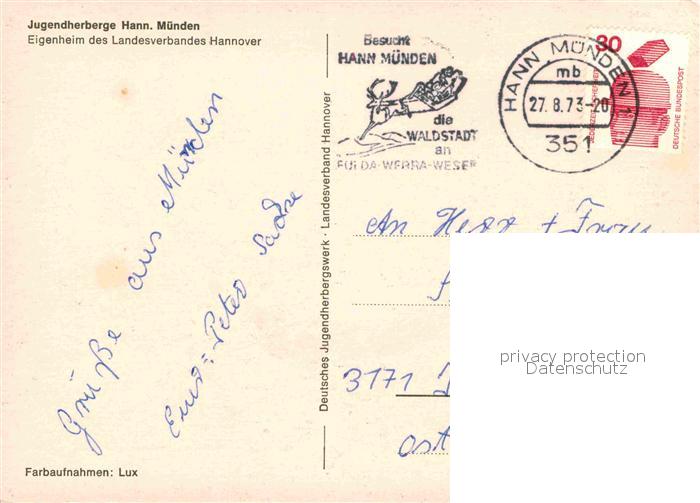 Jugendherberge Hann. Münden
Eigenheim des Landesverbandes Hannover
Besucht
HANN MÜNDEN
die
WALDSTADT
an
FULDA-WERRA-WESER
HANN. MÜNDEN
mb
27.8.73-20
351
30
JEDERZEIT SICHERHEIT
DEUTSCHE BUNDESPOST
Grüße aus Münden
Peter
Deutsches Jugendherbergswerk · Landesverband Hannover
An Herr + Frau
3171
privacy protection
Datenschutz
Farbaufnahmen: Lux